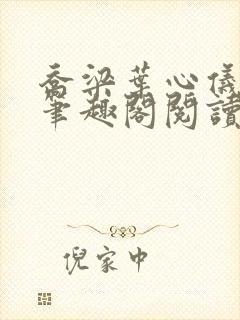 喬梁葉心儀
筆趣閣閱讀
倪家中